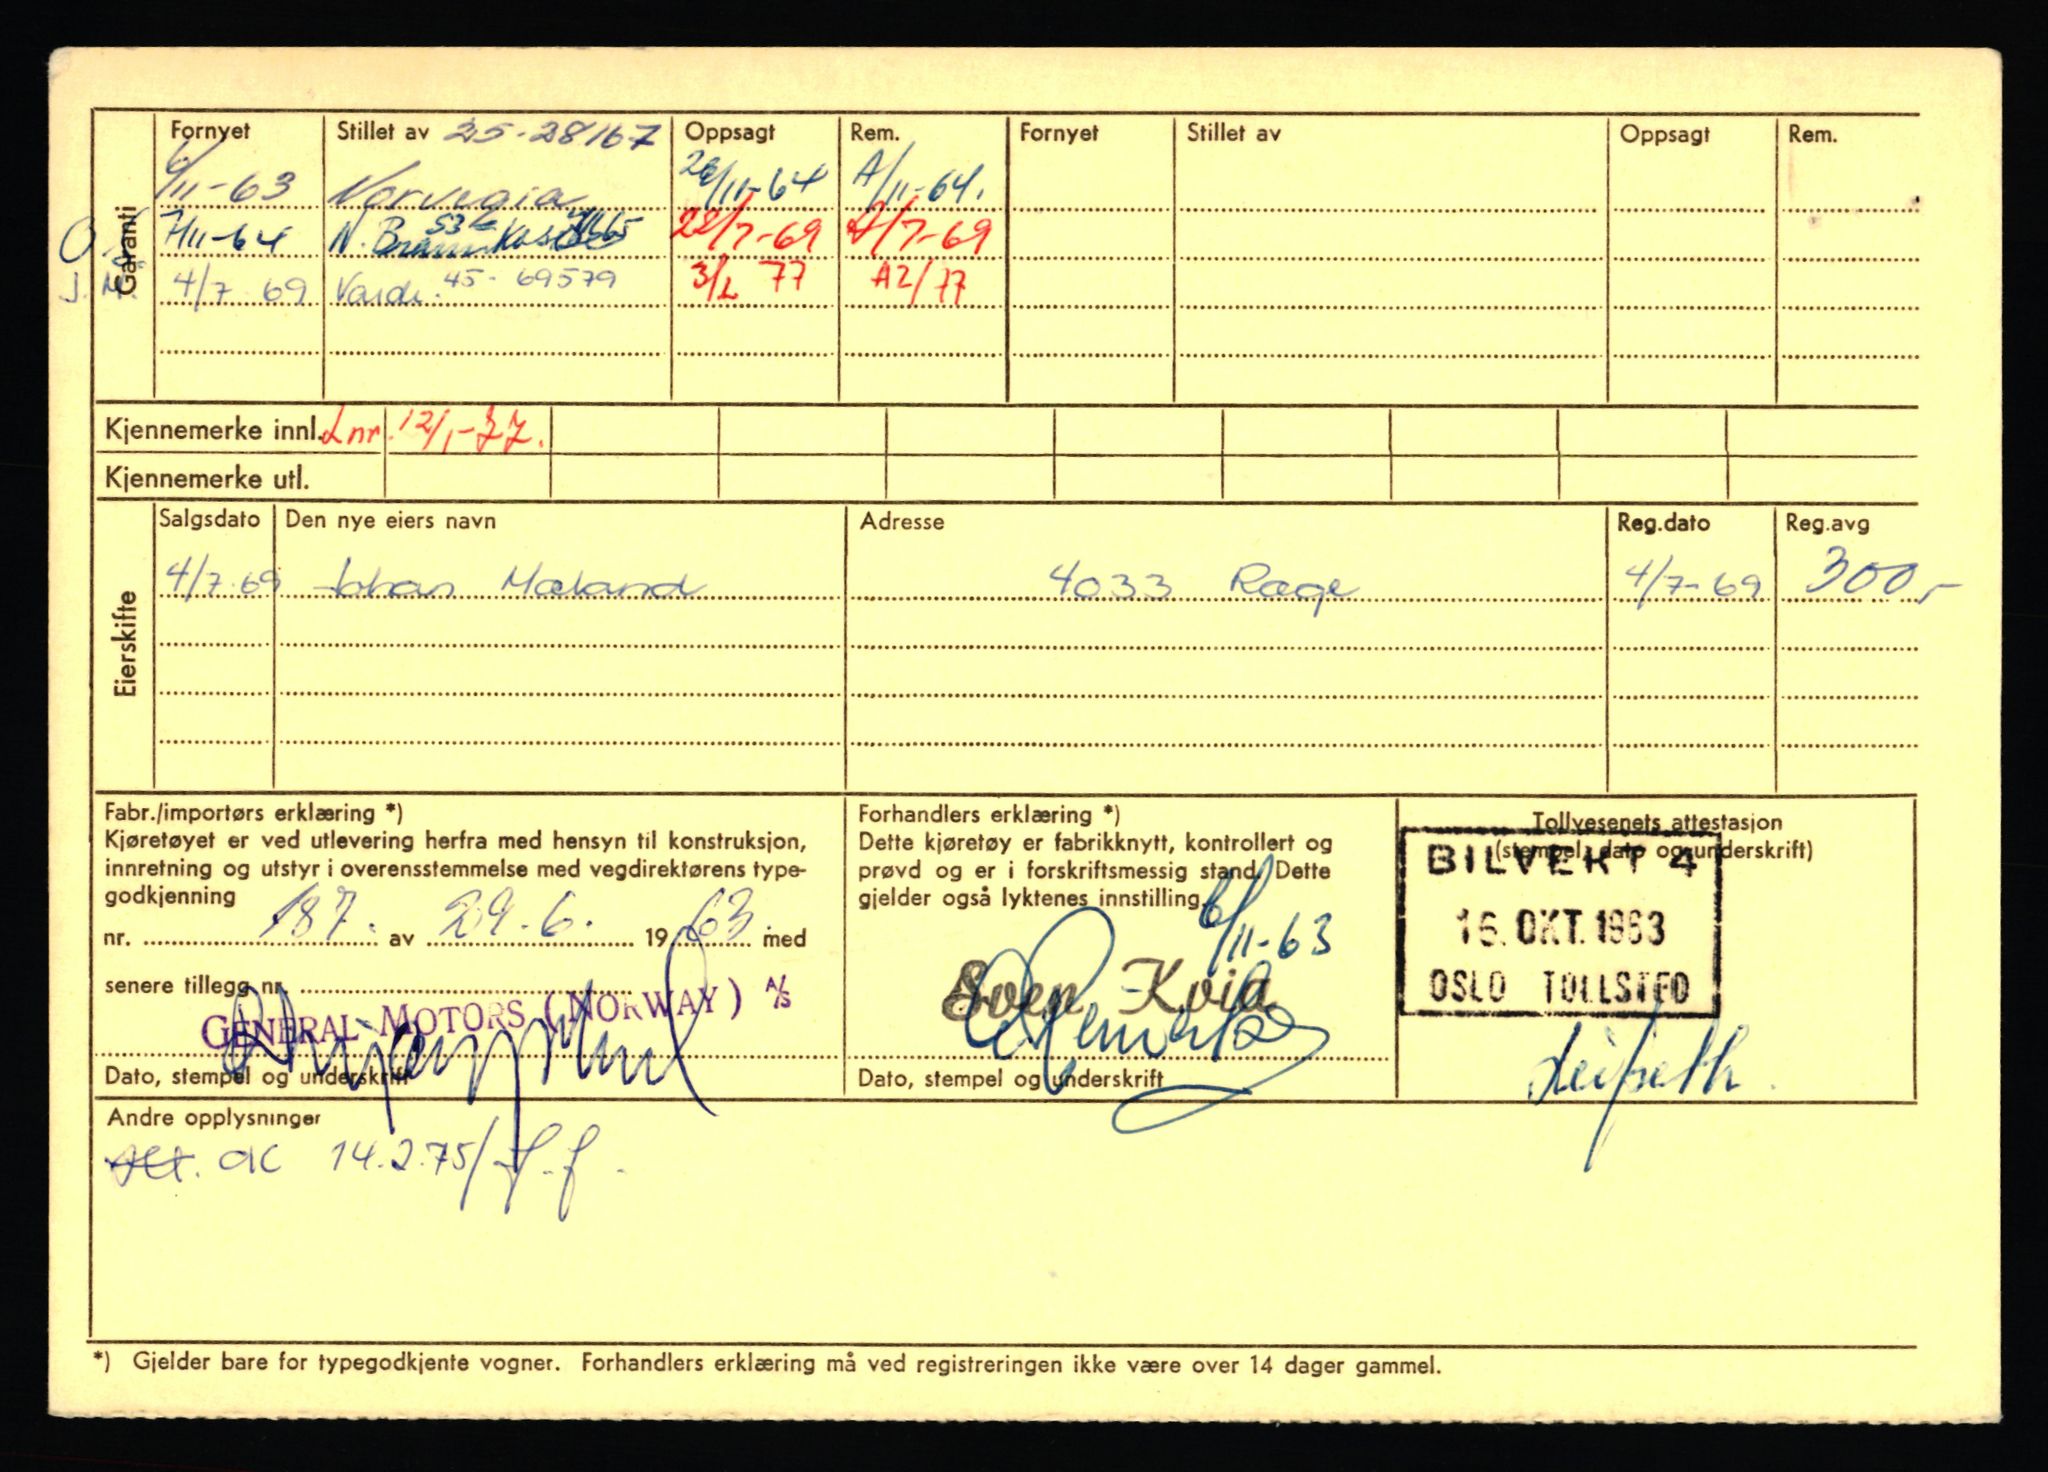 Garanti
Fornyet Stillet av 25-28167 Oppsagt Rem. Fornyet Stillet av Oppsagt Rem.
6/11-63 Norvegia /11-64 A/11-64.
7/11-64 N. 22/7-69 A/7-69
4/7 69 Varde. 45-69579 3/2 77 A2/77
Kjennemerke innl. Lnr. 12/1-77.
Kjennemerke utl.
Eierskifte
Salgsdato Den nye eiers navn Adresse Reg.dato Reg.avg
4/7-69 Johan Mæland 4033 Ræge 4/7-69 300,-
Fabr./importørs erklæring *)
Kjøretøyet er ved utlevering herfra med hensyn til konstruksjon,
innretning og utstyr i overensstemmelse med vegdirektørens type-
godkjenning
nr. 187. av 29.6. 1963. med
senere tillegg nr.
GENERAL MOTORS (NORWAY) A/S
Dato, stempel og underskrift
Forhandlers erklæring *)
Dette kjøretøy er fabrikknytt, kontrollert og
prøvd og er i forskriftsmessig stand. Dette
gjelder også lyktenes innstilling.
6/11-63
Sven Kvia
Dato, stempel og underskrift
Tollvesenets attestasjon
(stempel, dato og underskrift)
BILVEKT 4
16. OKT. 1963
OSLO TOLLSTED
Andre opplysninger
OK 14.2.75/
*) Gjelder bare for typegodkjente vogner. Forhandlers erklæring må ved registreringen ikke være over 14 dager gammel.